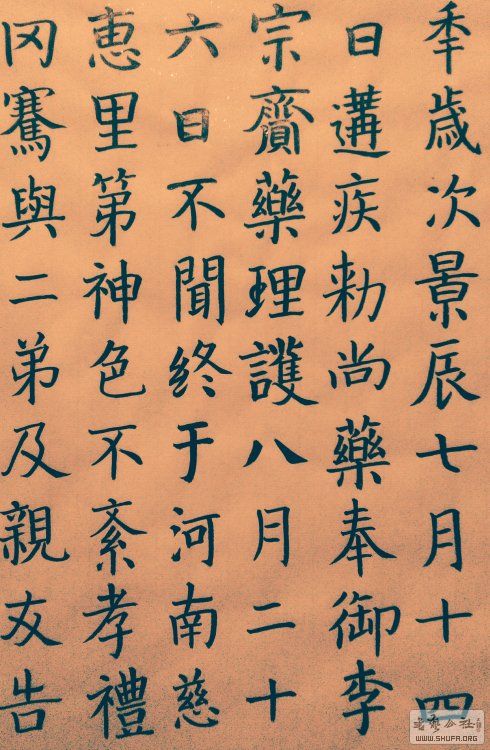 秊歲次景辰七月十四
日遘疾勅尚藥奉御李
宗齎藥理護八月二十
六日不聞終于河南慈
恵里第神色不紊孝禮
冈騫與二弟及親友告
WWW.SHUPA.ORG